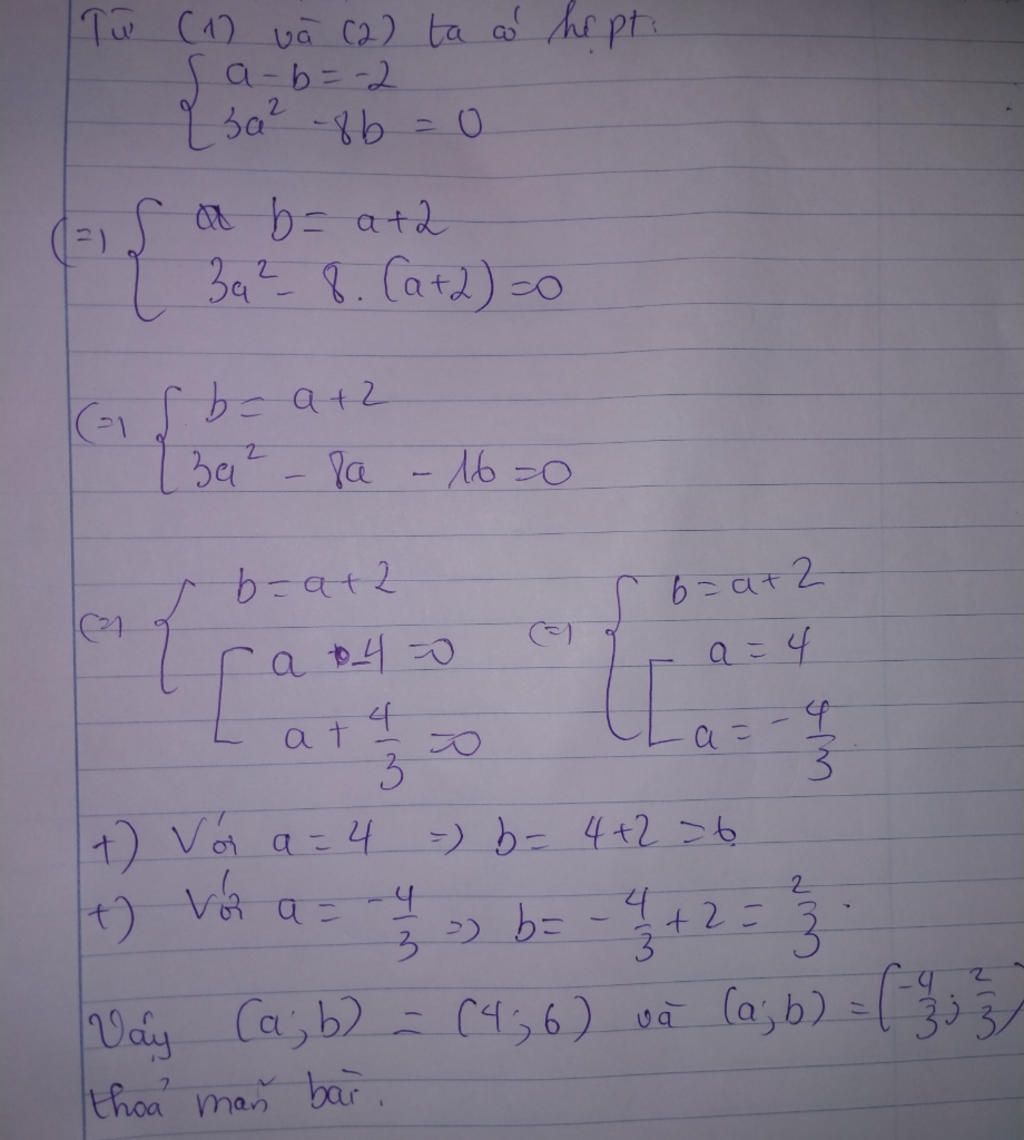 Từ (1) và (2) ta có hệ pt:
a - b = -2
3a² - 8b = 0
(=) b = a+2
3a² - 8.(a+2) = 0
(=) b = a+2
3a² - 8a - 16 = 0
(=) b = a+2 (=) b = a+2
a - 4 = 0 a = 4
a + 4/3 = 0 a = -4/3
+) Với a = 4 => b = 4+2 = 6
+) Với a = -4/3 => b = -4/3 + 2 = 2/3.
Vậy (a;b) = (4;6) và (a;b) = (-4/3; 2/3)
thoả mãn bài.